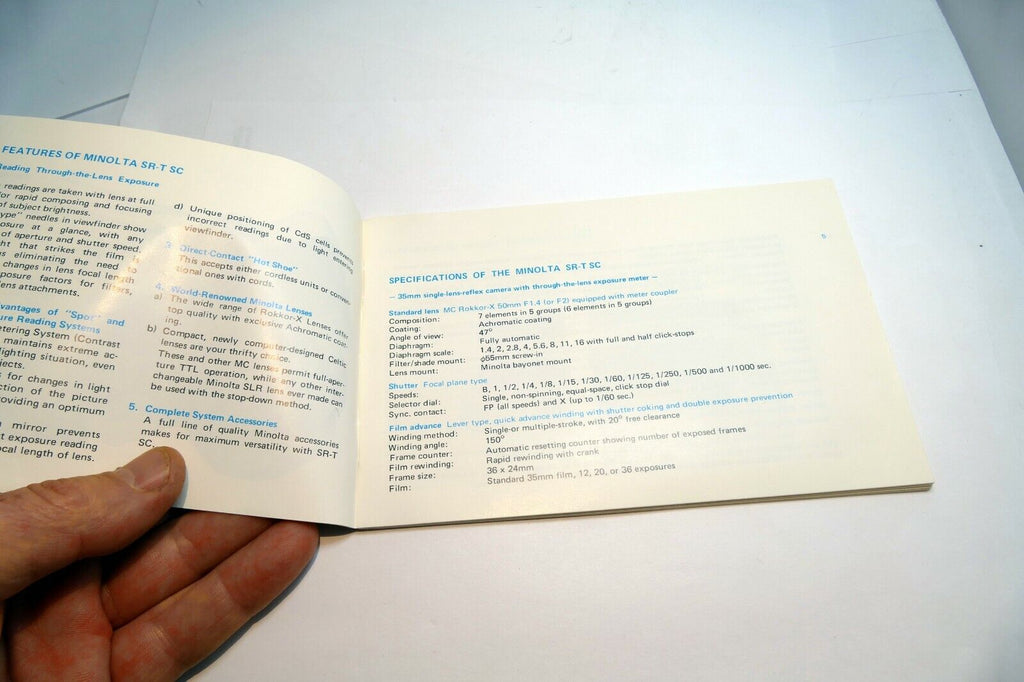 FEATURES OF MINOLTA SR-T SC
Reading Through-the-Lens Exposure
readings are taken with lens at full
for rapid composing and focusing
of subject brightness.
ype" needles in viewfinder show
osure at a glance, with any
of aperture and shutter speed.
ht that strikes the film is
s eliminating the need to
changes in lens focal length
posure factors for filters,
ens attachments.
vantages of "Spot" and
ure Reading Systems
etering System (Contrast
maintains extreme ac-
ighting situation, even
jects.
s for changes in light
ction of the picture
roviding an optimum
mirror prevents
t exposure reading
ocal length of lens.
d) Unique positioning of CdS cells prevents
incorrect readings due to light entering
viewfinder.
3. Direct-Contact "Hot Shoe"
This accepts either cordless units or conven-
tional ones with cords.
4. World-Renowned Minolta Lenses
a) The wide range of Rokkor-X Lenses offer
top quality with exclusive Achromatic coat-
ing.
b) Compact, newly computer-designed Celtic
lenses are your thrifty choice.
These and other MC lenses permit full-aper-
ture TTL operation, while any other inter-
changeable Minolta SLR lens ever made can
be used with the stop-down method.
5. Complete System Accessories
A full line of quality Minolta accessories
makes for maximum versatility with SR-T
SC.
5
SPECIFICATIONS OF THE MINOLTA SR-T SC
— 35mm single-lens-reflex camera with through-the-lens exposure meter —
Standard lens MC Rokkor-X 50mm F1.4 (or F2) equipped with meter coupler
Composition: 7 elements in 5 groups (6 elements in 5 groups)
Coating: Achromatic coating
Angle of view: 47°
Diaphragm: Fully automatic
Diaphragm scale: 1.4, 2, 2.8, 4, 5.6, 8, 11, 16 with full and half click-stops
Filter/shade mount: φ55mm screw-in
Lens mount: Minolta bayonet mount
Shutter Focal plane type
Speeds: B, 1, 1/2, 1/4, 1/8, 1/15, 1/30, 1/60, 1/125, 1/250, 1/500 and 1/1000 sec.
Selector dial: Single, non-spinning, equal-space, click stop dial
Sync. contact: FP (all speeds) and X (up to 1/60 sec.)
Film advance Lever type, quick advance winding with shutter coking and double exposure prevention
Winding method: Single-or multiple-stroke, with 20° free clearance
Winding angle: 150°
Frame counter: Automatic resetting counter showing number of exposed frames
Film rewinding: Rapid rewinding with crank
Frame size: 36 x 24mm
Film: Standard 35mm film, 12, 20, or 36 exposures